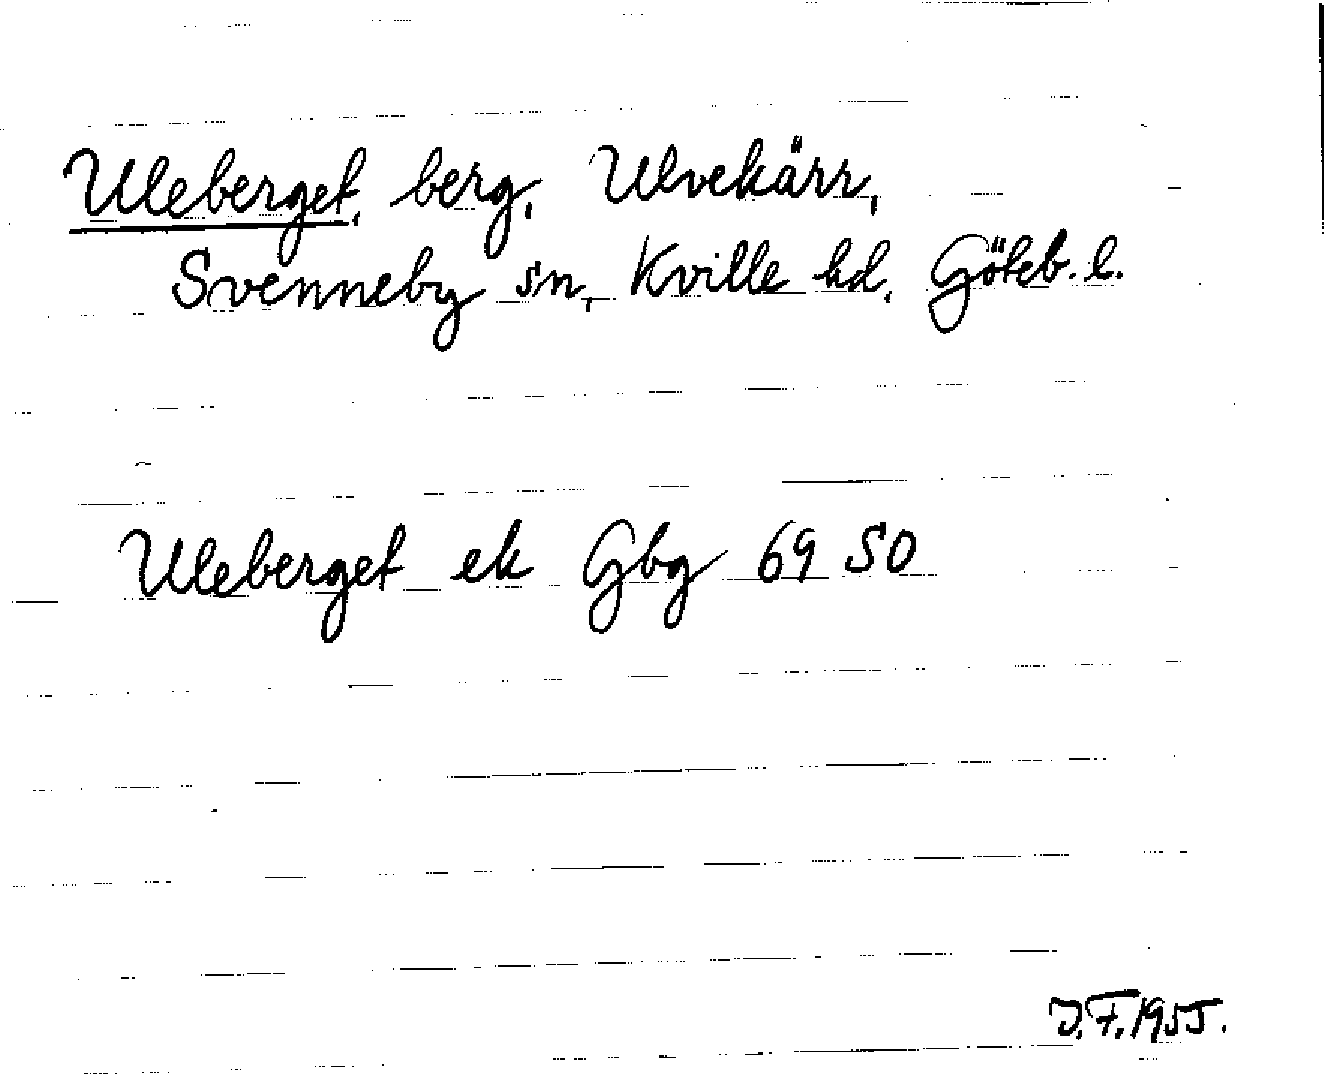 Uleberget, berg, Ulvekärr,
Svenneby sn, Kville hd, Göteb. l.
Uleberget ek Gbg 69 SO
J.F. 1955.